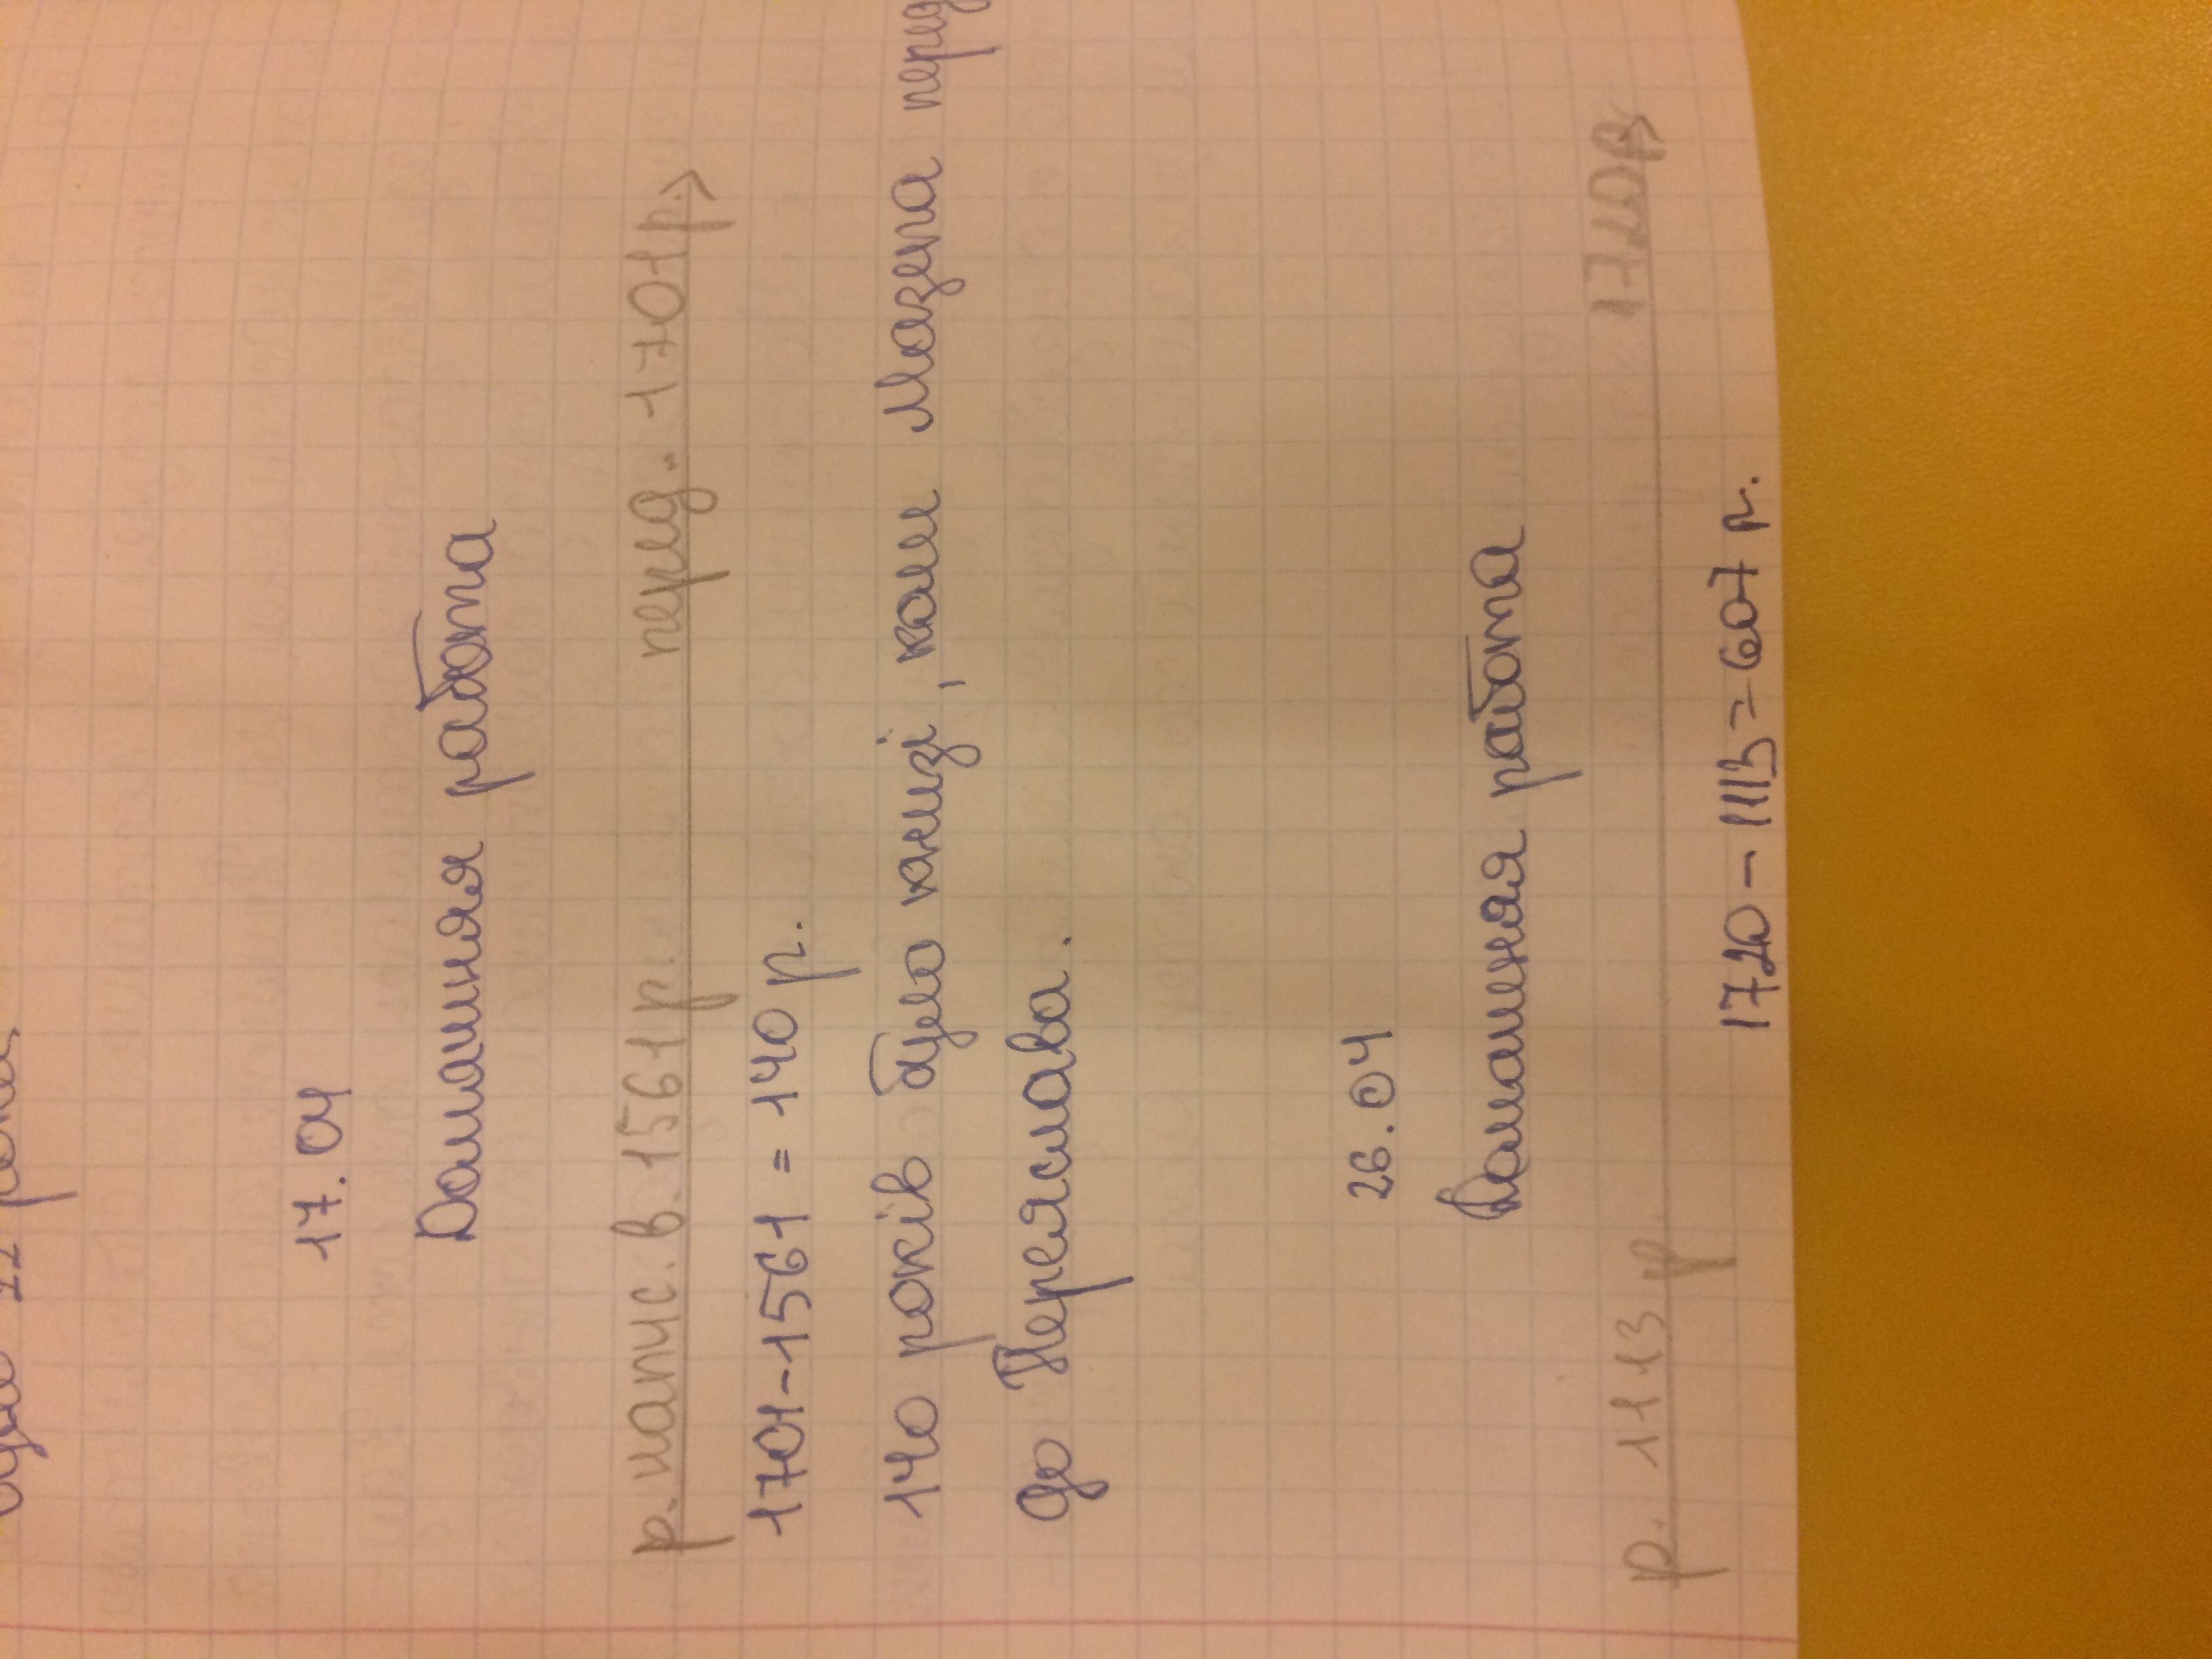 17.04
Домашняя работа
р. напис. в. 1561 р. перед. 1701 р.
1701-1561 = 140 р.
140 років було книзі, коли Мазепа перед
до Переяслава.
26.04
Домашняя работа
р. 1113 р. 1720 р.
1720 - 1113 = 607 р.